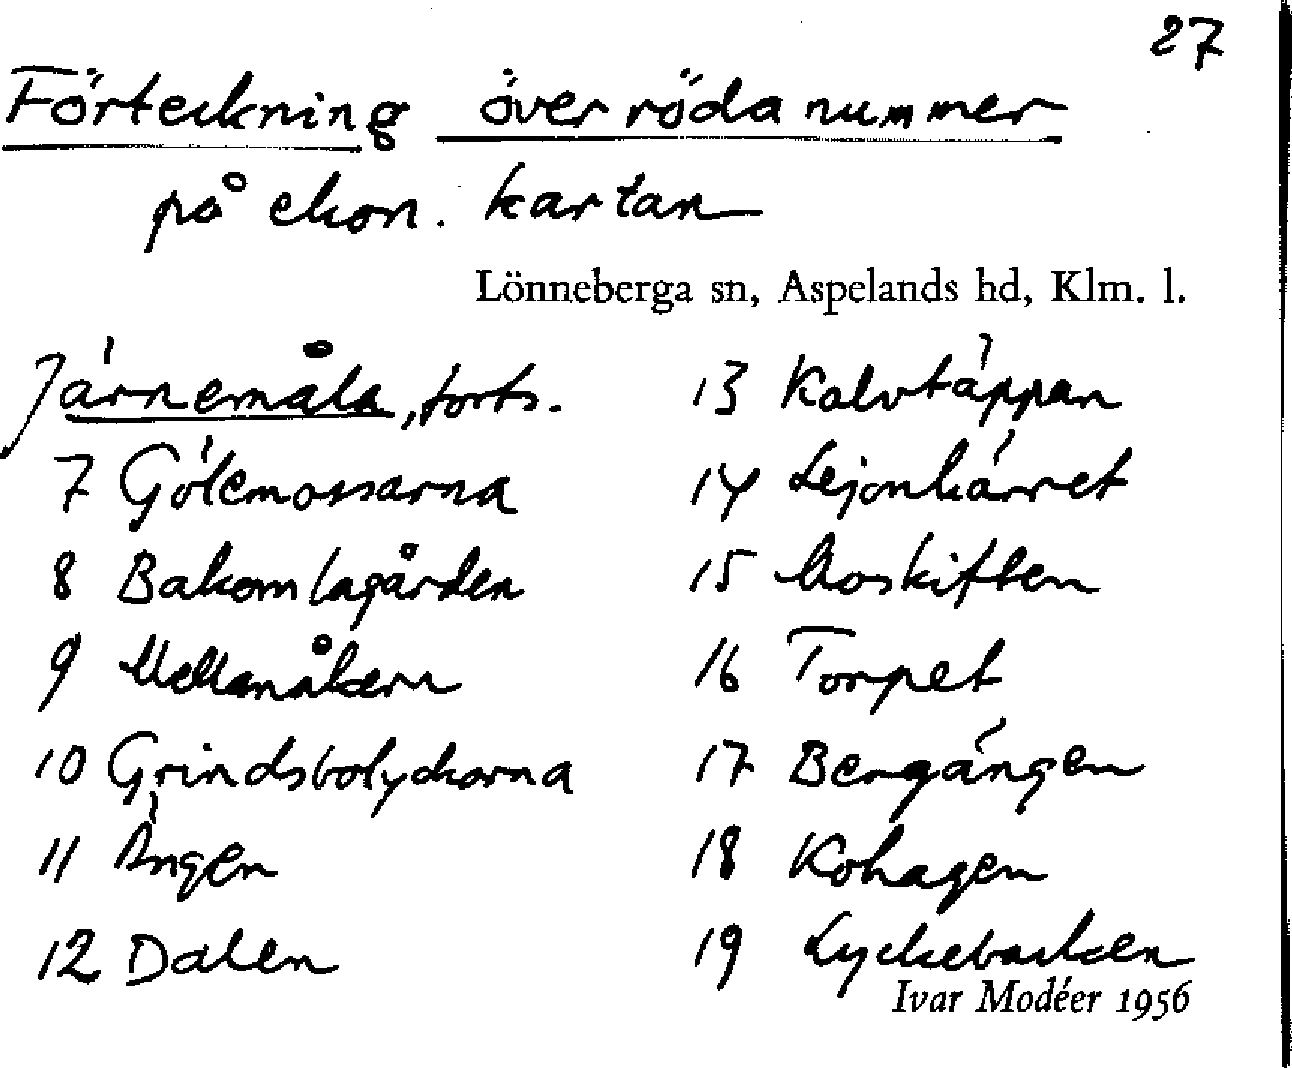 27
Förteckning över röda nummer
på ekon. kartan
Lönneberga sn, Aspelands hd, Klm. l.
Järnemåla, forts.
7 Gölemossarna
8 Bakom lagården
9 Mellanåkern
10 Grindsbolyckorna
11 Ängen
12 Dalen
13 Kalvtäppan
14 Lejonkärret
15 Moskiften
16 Torpet
17 Bergängen
18 Kohagen
19 Lyckebacken
Ivar Modéer 1956